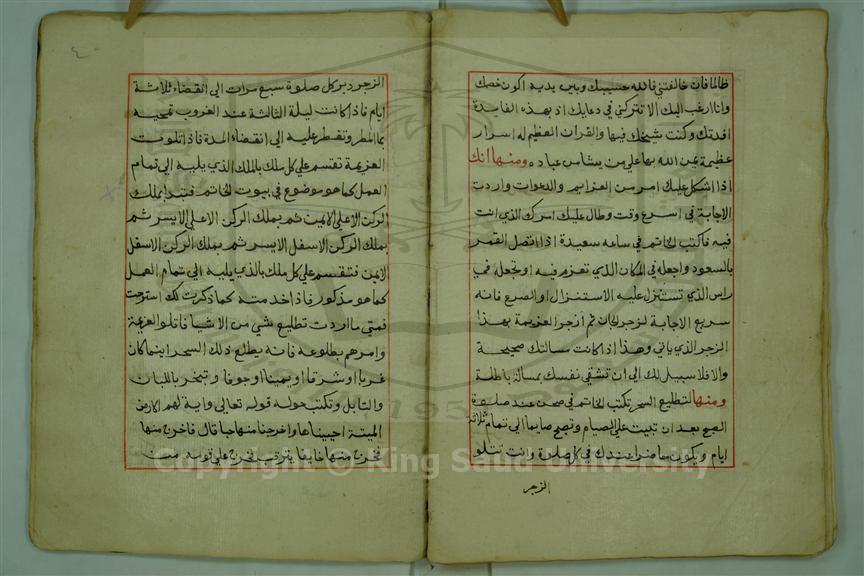 ظالما فان خالفتني فالله حسيبك وبين يديه اكون خصمك
وانا ارغب اليك الا تتركني في دعايك اذ بهذه الفايدة
افدتك وكنت شيخك فيها والقران العظيم له اسرار
عظيمة يمن الله بها على من يشا من عباده ومنها انك
اذا اشكل عليك امر من العزايم والدعوات واردت
الاجابة في اسرع وقت وطال عليك امرك الذي انت
فيه فاكتب الخاتم في ساعه سعيدة اذا اتصل القمر
بالسعود واجعله في المكان الذي تعزم فيه او تجعله في
راس الذي تستنزل عليه الاستنزال او الصرع فانه
سريع الاجابة لزجر الجان ثم ازجر العزيمة بهذا
الزجر الذي ياتي وهذا اذا كانت مسالتك صحيحة
والا فلا سبيل لك الى ان تشقي نفسك بمسالة باطلة
ومنها لتطليع السحر تكتب الخاتم في صحن عند صلاة
الصبح بعد ان تبيت على الصيام وتصبح صايما الى تمام ثلاثة
ايام ويكون حاضرا عندك في كل صلاة وانت تتلو
الزجر
الزجر دبر كل صلوة سبع مرات الى انقضاء ثلاثة
ايام فاذا كانت ليلة الثالثة عند الغروب تمحيه
بما المطر وتفطر عليه الى انقضاء المدة فاذا تلوت
العزيمة تقسم على كل ملك بالملك الذي يليه الى تمام
العمل كما هو موضوع في بيوت الخاتم فتبدا بملك
الركن الاعلى الايمن ثم بملك الركن الاعلى الايسر ثم
بملك الركن الاسفل الايسر ثم بملك الركن الاسفل
الايمن فتقسم على كل ملك بالذي يليه الى تمام العمل
كما هو مذكور فاذا خدمته كما ذكرت لك استرحت
فمتى ما اردت تطليع شي من الاشيا فاتلو العزيمة
وامرهم بطلوعه فانه يطلع ذلك السحر اينما كان
غربا او شرقا او يمينا او جوفا وتبخر باللبان
والتابل وتكتب حوله قوله تعالى واية لهم الارض
الميتة احييناها واخرجنا منها حبا قال فاخرج منها
فخرج منها خايفا يترقب فخرج على قومه من
Copyright © King Saud University
1957